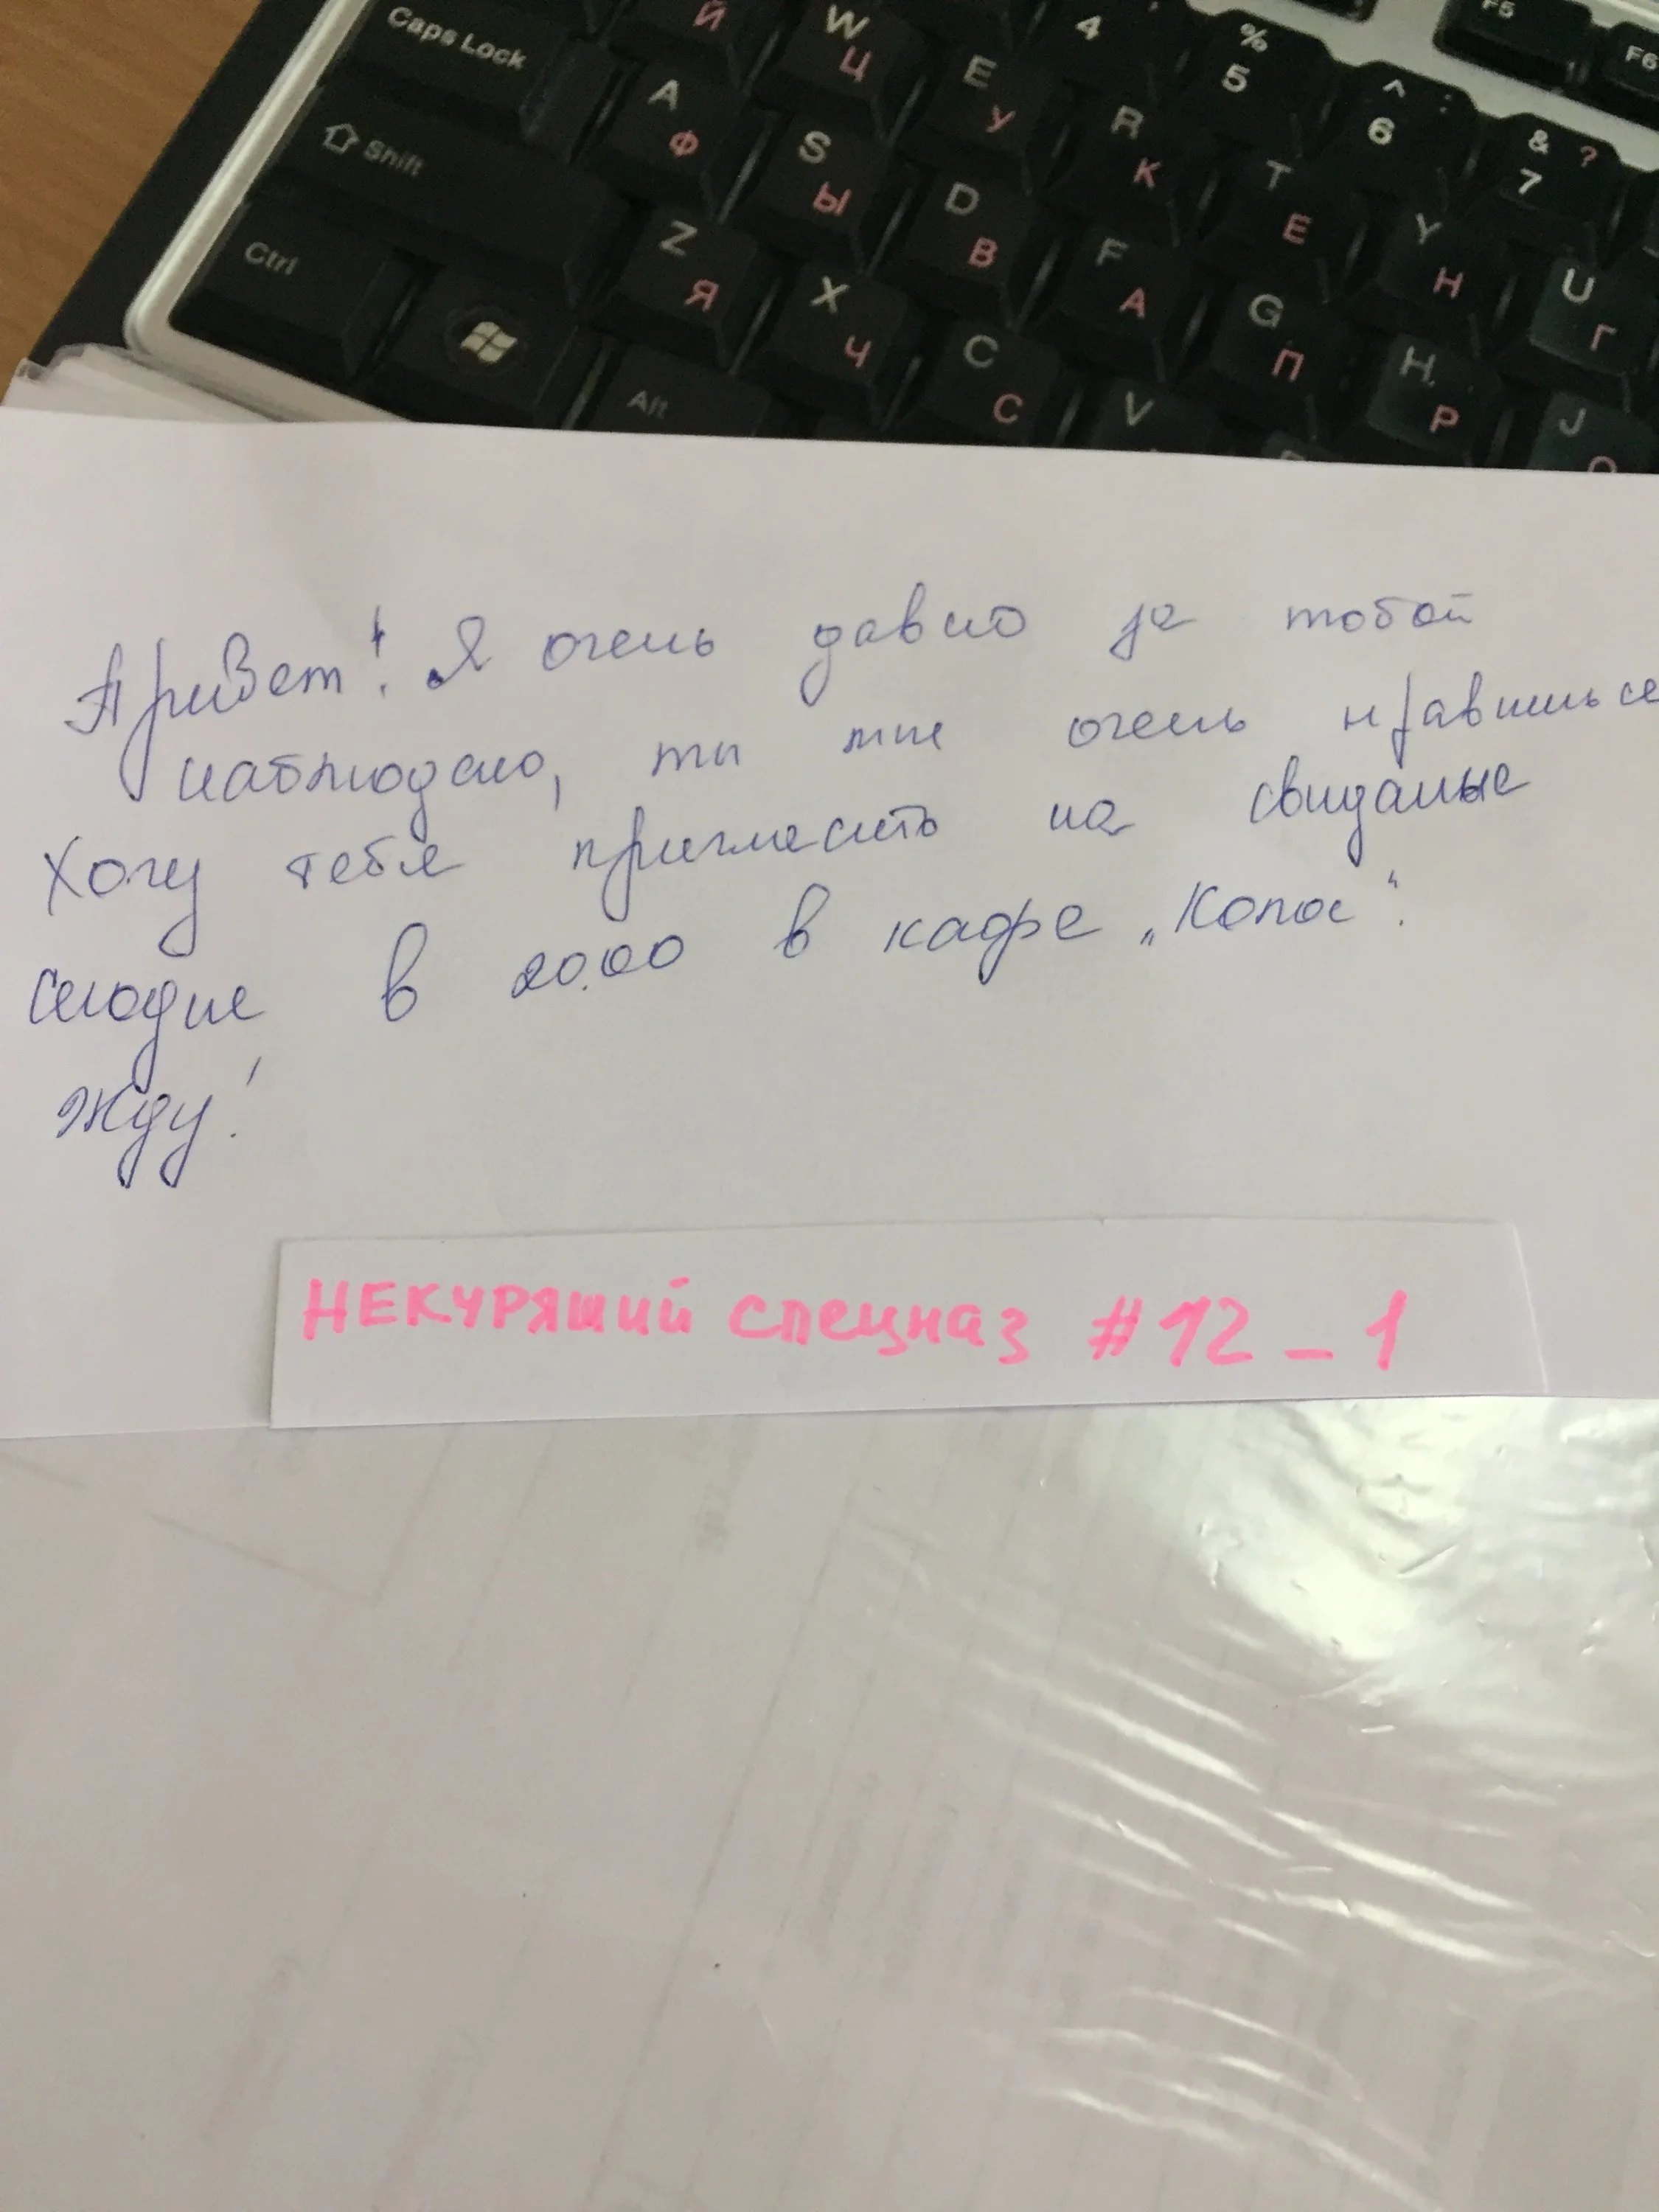 Caps Lock Й W Ц E У 4 % 5 ^ : 6 & ? 7 F5 F6
Shift A Ф S Ы D В R К T Е Y Н U Г
Ctrl Z Я X Ч C С F А G П H Р J О
Alt V
Привет! Я очень давно за тобой
наблюдаю, ты мне очень нравишься
Хочу тебя пригласить на свиданье
сегодня в 20.00 в кафе „Колос".
Жду!
НЕКУРЯЩИЙ спецназ #12_1